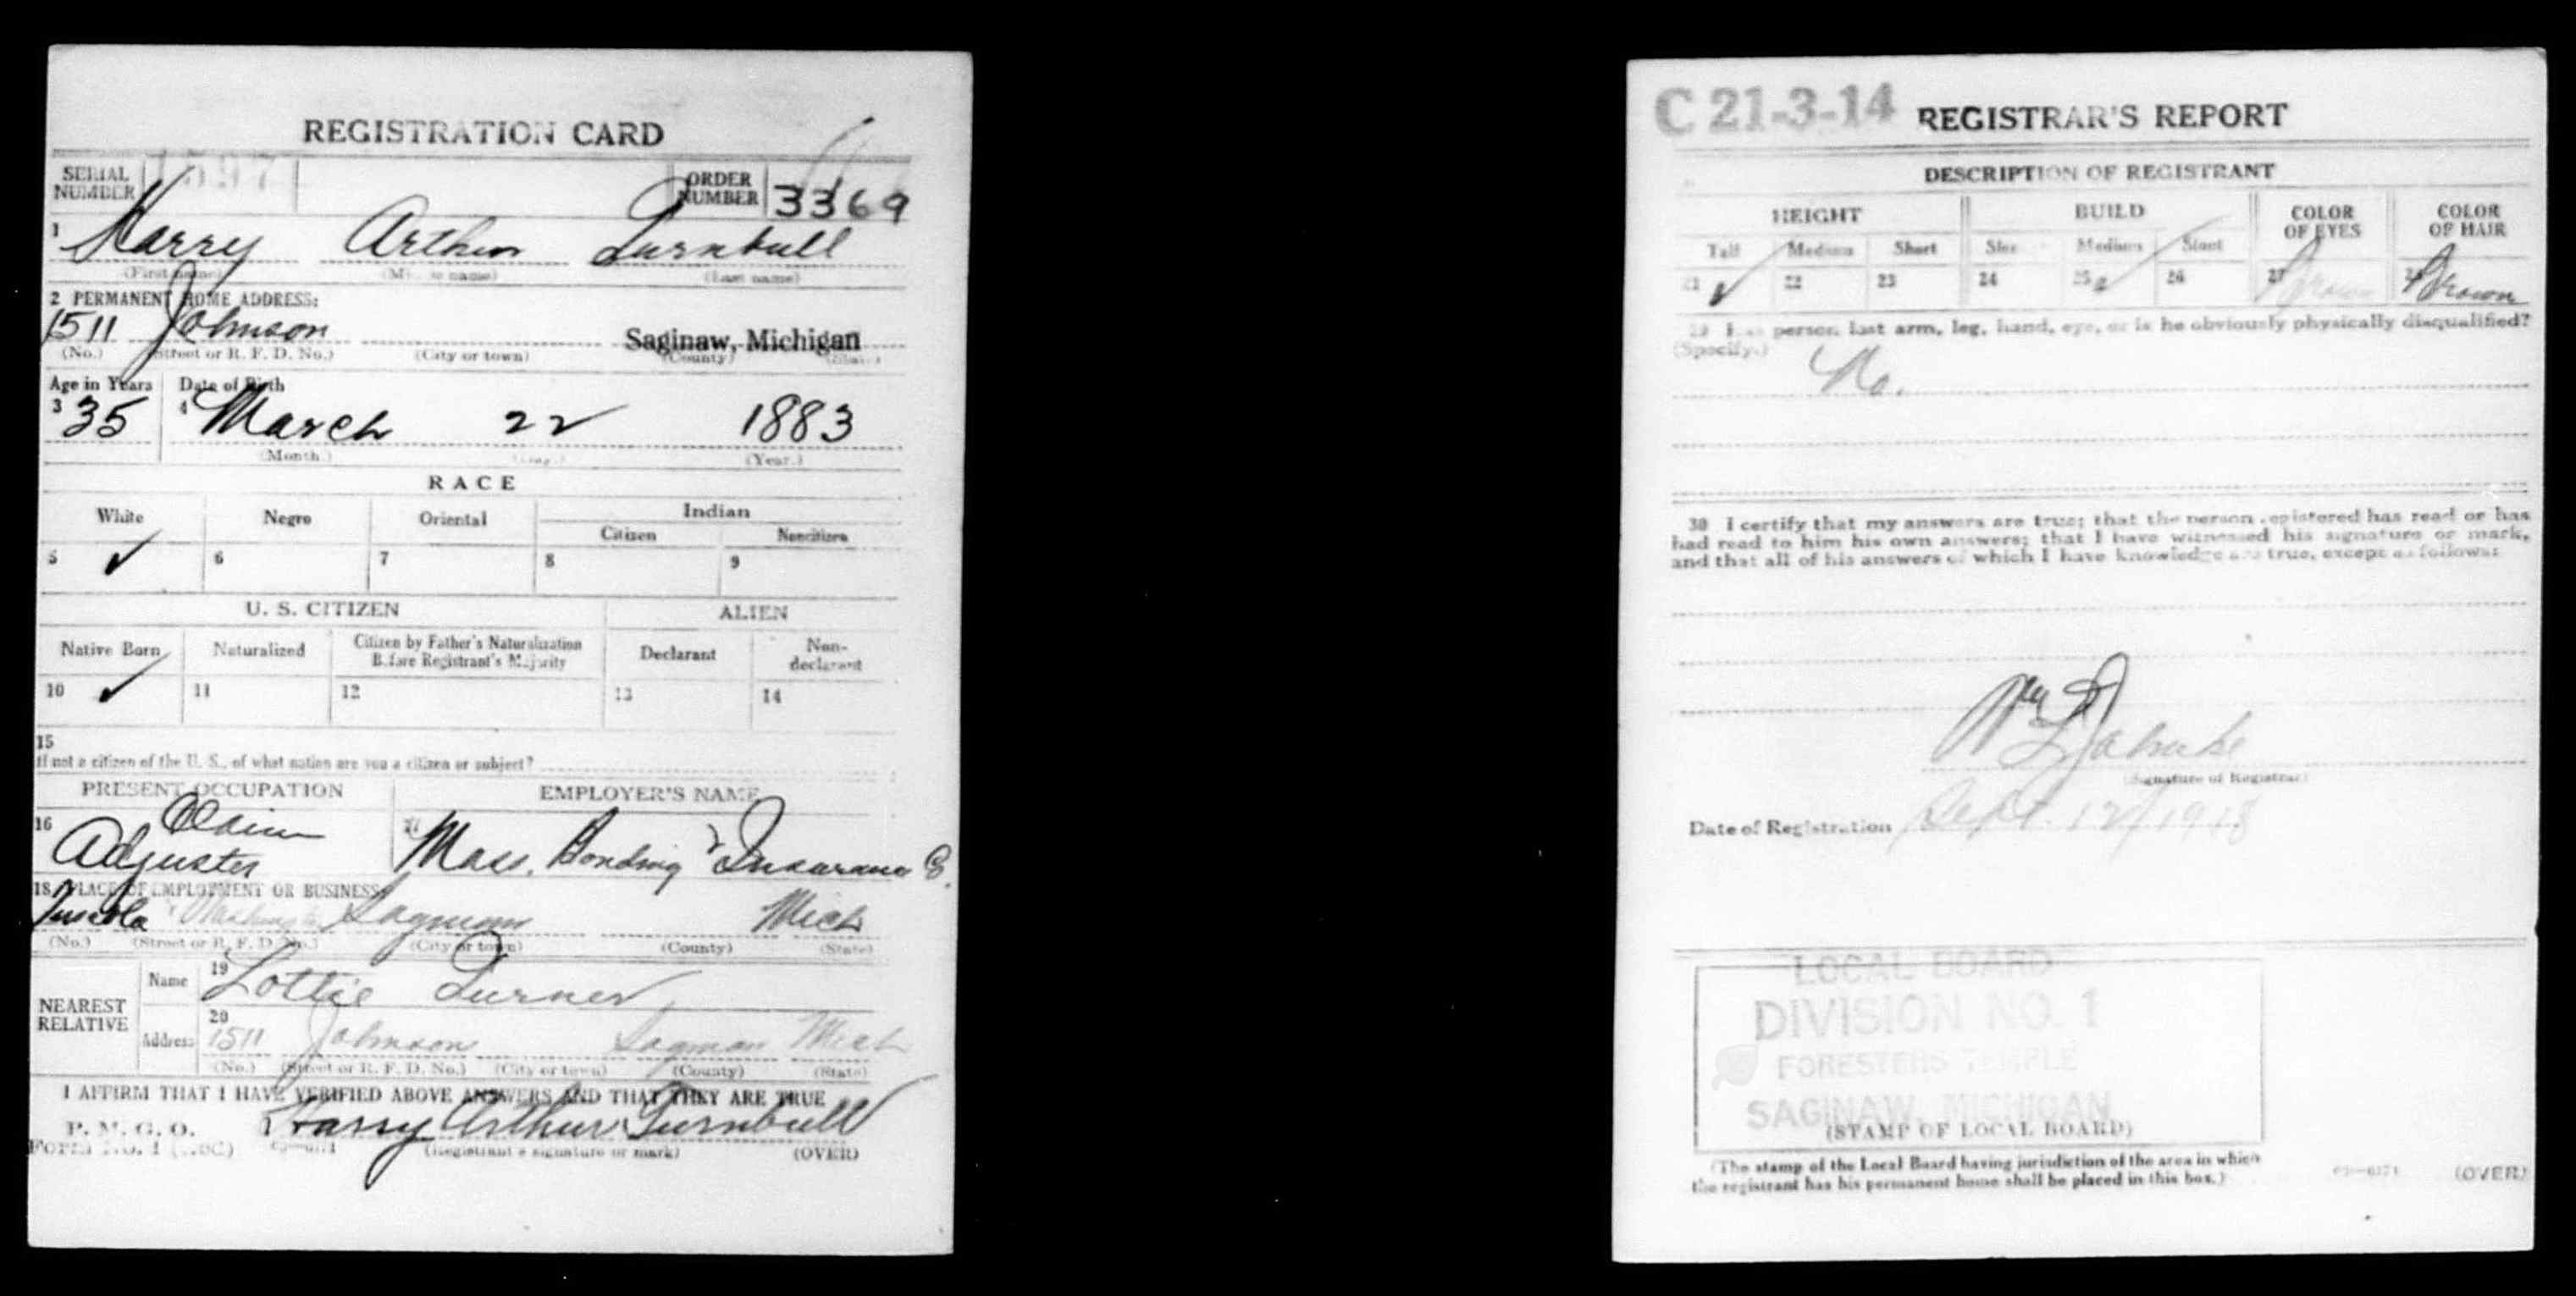 REGISTRATION CARD
SERIAL NUMBER 1597 ORDER NUMBER 3369
1 Harry Arthur Turnbull
(First name) (Middle name) (Last name)
2 PERMANENT HOME ADDRESS:
1511 Johnson Saginaw, Michigan
(No.) (Street or R. F. D. No.) (City or town) (County) (State)
Age in Years Date of Birth
3 35 4 March 22 1883
(Month.) (Day.) (Year.)
RACE
White Negro Oriental Indian
Citizen Noncitizen
5 ✓ 6 7 8 9
U. S. CITIZEN ALIEN
Native Born Naturalized Citizen by Father's Naturalization Before Registrant's Majority Declarant Non-declarant
10 ✓ 11 12 13 14
15
If not a citizen of the U. S., of what nation are you a citizen or subject?
PRESENT OCCUPATION EMPLOYER'S NAME
16 Claim Adjuster 17 Mass. Bonding & Insurance Co.
18 PLACE OF EMPLOYMENT OR BUSINESS:
Tuscola & Washington Saginaw Mich
(No.) (Street or R. F. D. No.) (City or town) (County) (State)
NEAREST RELATIVE
Name 19 Lottie Turner
Address 20 1511 Johnson Saginaw Mich
(No.) (Street or R. F. D. No.) (City or town) (County) (State)
I AFFIRM THAT I HAVE VERIFIED ABOVE ANSWERS AND THAT THEY ARE TRUE
P. M. G. O.
Form No. 1 (Red) Harry Arthur Turnbull
(Registrant's signature or mark) (OVER)
C 21-3-14 REGISTRAR'S REPORT
DESCRIPTION OF REGISTRANT
HEIGHT BUILD COLOR OF EYES COLOR OF HAIR
Tall Medium Short Slender Medium Stout
21 ✓ 22 23 24 25 ✓ 26 27 Brown 28 Brown
29 Has person lost arm, leg, hand, eye, or is he obviously physically disqualified?
(Specify.) No.
30 I certify that my answers are true; that the person registered has read or has
had read to him his own answers; that I have witnessed his signature or mark,
and that all of his answers of which I have knowledge are true, except as follows:
(Signature of Registrar)
Date of Registration Sept. 12, 1918
LOCAL BOARD
DIVISION NO. 1
FORESTERS TEMPLE
SAGINAW, MICHIGAN
(STAMP OF LOCAL BOARD)
(The stamp of the Local Board having jurisdiction of the area in which
the registrant has his permanent home shall be placed in this box.)
(OVER)